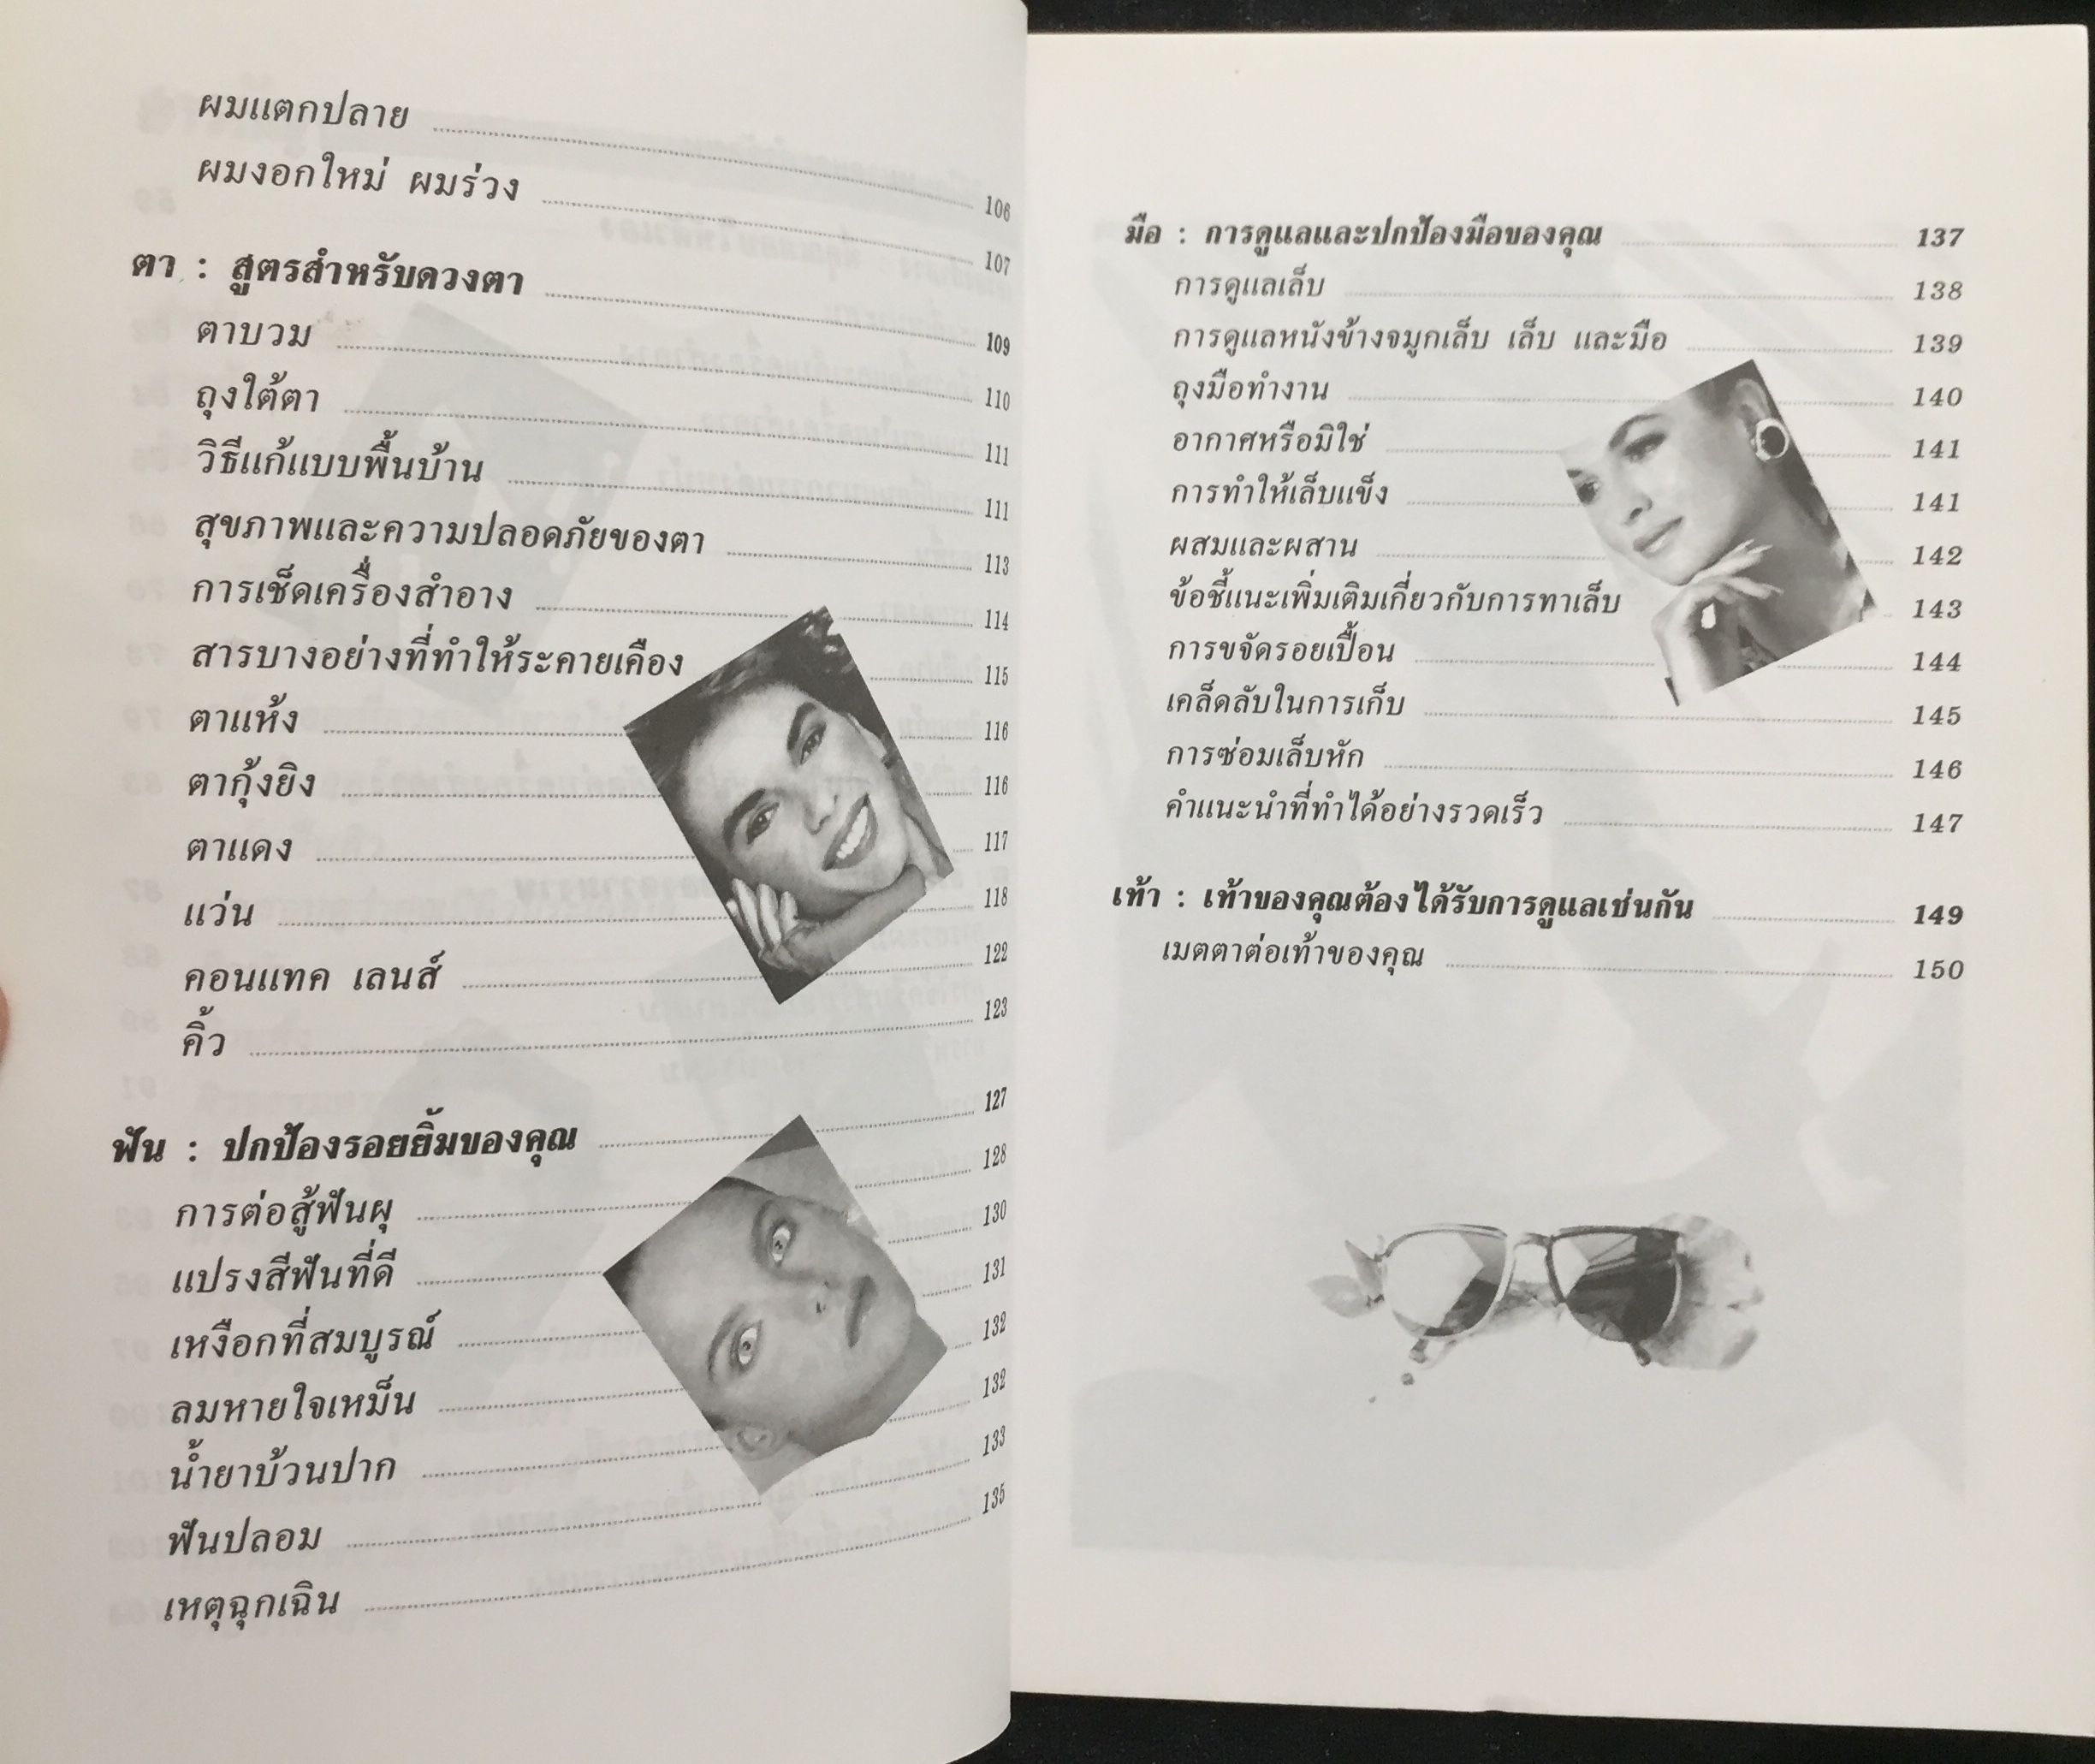 ผมแตกปลาย 106
ผมงอกใหม่ ผมร่วง 107
ตา : สูตรสำหรับดวงตา 109
ตาบวม 110
ถุงใต้ตา 111
วิธีแก้แบบพื้นบ้าน 111
สุขภาพและความปลอดภัยของตา 113
การเช็ดเครื่องสำอาง 114
สารบางอย่างที่ทำให้ระคายเคือง 115
ตาแห้ง 116
ตากุ้งยิง 116
ตาแดง 117
แว่น 118
คอนแทค เลนส์ 122
คิ้ว 123
ฟัน : ปกป้องรอยยิ้มของคุณ 127
การต่อสู้ฟันผุ 128
แปรงสีฟันที่ดี 130
เหงือกที่สมบูรณ์ 131
ลมหายใจเหม็น 132
น้ำยาบ้วนปาก 132
ฟันปลอม 133
เหตุฉุกเฉิน 135
มือ : การดูแลและปกป้องมือของคุณ 137
การดูแลเล็บ 138
การดูแลหนังข้างจมูกเล็บ เล็บ และมือ 139
ถุงมือทำงาน 140
อากาศหรือมิใช่ 141
การทำให้เล็บแข็ง 141
ผสมและผสาน 142
ข้อชี้แนะเพิ่มเติมเกี่ยวกับการทาเล็บ 143
การขจัดรอยเปื้อน 144
เคล็ดลับในการเก็บ 145
การซ่อมเล็บหัก 146
คำแนะนำที่ทำได้อย่างรวดเร็ว 147
เท้า : เท้าของคุณต้องได้รับการดูแลเช่นกัน 149
เมตตาต่อเท้าของคุณ 150